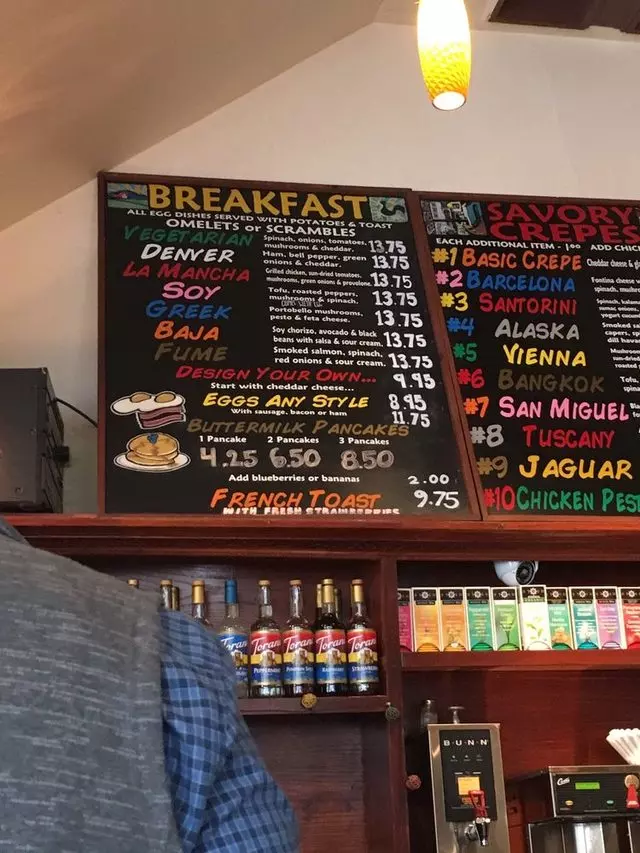 BREAKFAST
ALL EGG DISHES SERVED WITH POTATOES & TOAST
OMELETS or SCRAMBLES
VEGETARIAN Spinach, onions, tomatoes, mushrooms & cheddar. 13.75
DENVER Ham, bell pepper, green onions & cheddar. 13.75
LA MANCHA Grilled chicken, sun-dried tomatoes, mushrooms, green onions & provolone. 13.75
SOY Tofu, roasted peppers, mushrooms & spinach. 13.75
GREEK Portobello mushrooms, pesto & feta cheese. 13.75
BAJA Soy chorizo, avocado & black beans with salsa & sour cream. 13.75
FUME Smoked salmon, spinach, red onions & sour cream. 13.75
DESIGN YOUR OWN... 9.95
Start with cheddar cheese...
EGGS ANY STYLE 8.95
With sausage, bacon or ham 11.75
BUTTERMILK PANCAKES
1 Pancake 2 Pancakes 3 Pancakes
4.25 6.50 8.50
Add blueberries or bananas 2.00
FRENCH TOAST 9.75
WITH FRESH STRAWBERRIES
SAVORY
CREPES
EACH ADDITIONAL ITEM - 1.00 ADD CHIC
#1 BASIC CREPE Cheddar cheese &
#2 BARCELONA Fontina cheese
#3 SANTORINI Spinach,
#4 ALASKA Smoked
#5 VIENNA
#6 BANGKOK Tofu,
#7 SAN MIGUEL
#8 TUSCANY
#9 JAGUAR
#10 CHICKEN PES
Torani
Torani
PEPPERMINT
Torani
Torani
RASPBERRY
Torani
STRAWBERRY
BUNN
Curtis